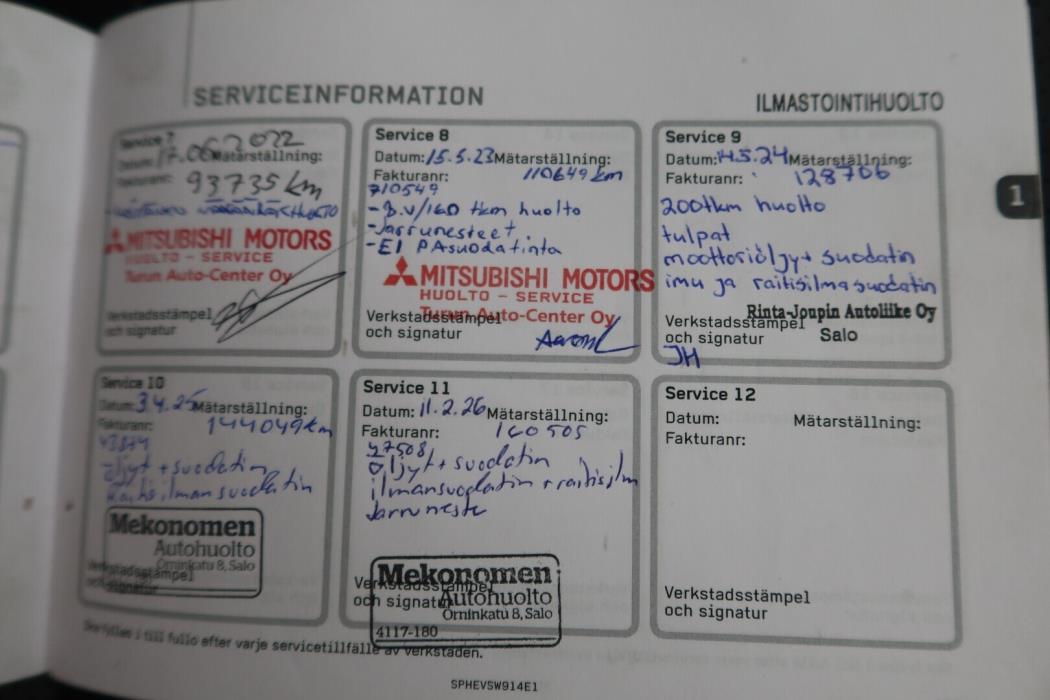 SERVICEINFORMATION
ILMASTOINTIHUOLTO
Service 7
Datum: 17.06.2022 Mätarställning:
Fakturanr: 93735 km
MITSUBISHI MOTORS
HUOLTO - SERVICE
Turun Auto-Center Oy
Verkstadsstämpel
och signatur
Service 8
Datum: 15.5.23 Mätarställning:
Fakturanr: 110649 km
710549
- 3.v/160 tkm huolto
- Jarrunesteet.
- EI PAsuodatinta
MITSUBISHI MOTORS
HUOLTO - SERVICE
Turun Auto-Center Oy
Verkstadsstämpel
och signatur
Service 9
Datum: 14.5.24 Mätarställning:
Fakturanr: 128706
200tkm huolto
tulpat
moottoriöljy+ suodatin
imu ja raitisilmasuodatin
Rinta-Joupin Autoliike Oy
Verkstadsstämpel
och signatur
Salo
JH
Service 10
Datum: 3.4.25 Mätarställning:
Fakturanr: 144049km
öljyt + suodatin
Raitisilmansuodatin
Mekonomen
Autohuolto
Örninkatu 8, Salo
Verkstadsstämpel
och signatur
Service 11
Datum: 11.2.26 Mätarställning:
Fakturanr: 160505
47508
öljyt + suodatin
ilmansuodatin + raitisilm
Jarruneste
Mekonomen
Autohuolto
Örninkatu 8, Salo
4117-180
Verkstadsstämpel
och signatur
Service 12
Datum: Mätarställning:
Fakturanr:
Verkstadsstämpel
och signatur
Ska fyllas i till fullo efter varje servicetillfälle av verkstaden.
SPHEVSW914E1
1